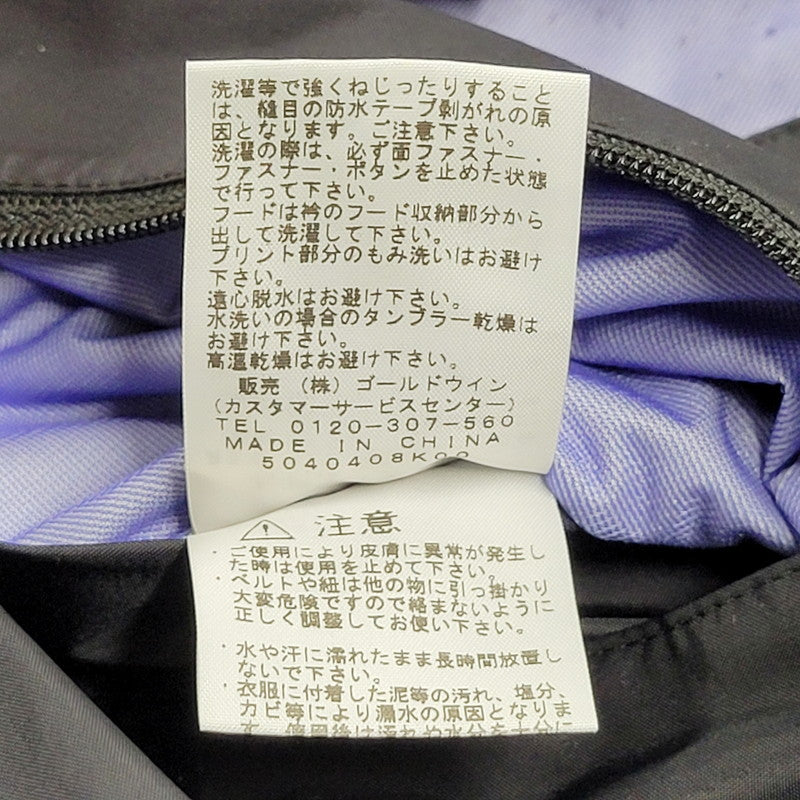 洗濯等で強くねじったりすること
は、縫目の防水テープ剥がれの原
因となります。ご注意下さい。
洗濯の際は、必ず面ファスナー・
ファスナー・ボタンを止めた状態
で行って下さい。
フードは衿のフード収納部分から
出して洗濯して下さい。
プリント部分のもみ洗いはお避け
下さい。
遠心脱水はお避け下さい。
水洗いの場合のタンブラー乾燥は
お避け下さい。
高温乾燥はお避け下さい。
販売 (株) ゴールドウイン
(カスタマーサービスセンター)
TEL 0120-307-560
MADE IN CHINA
5040408K00
注意
・ご使用により皮膚に異常が発生し
た時は使用を止めて下さい。
・ベルトや紐は他の物に引っ掛かり
大変危険ですので絡まないように
正しく調整してお使い下さい。
・水や汗に濡れたまま長時間放置し
ないで下さい。
・衣服に付着した泥等の汚れ、塩分、
カビ等により漏水の原因となりま
す。使用後は汚れや水分を十分に